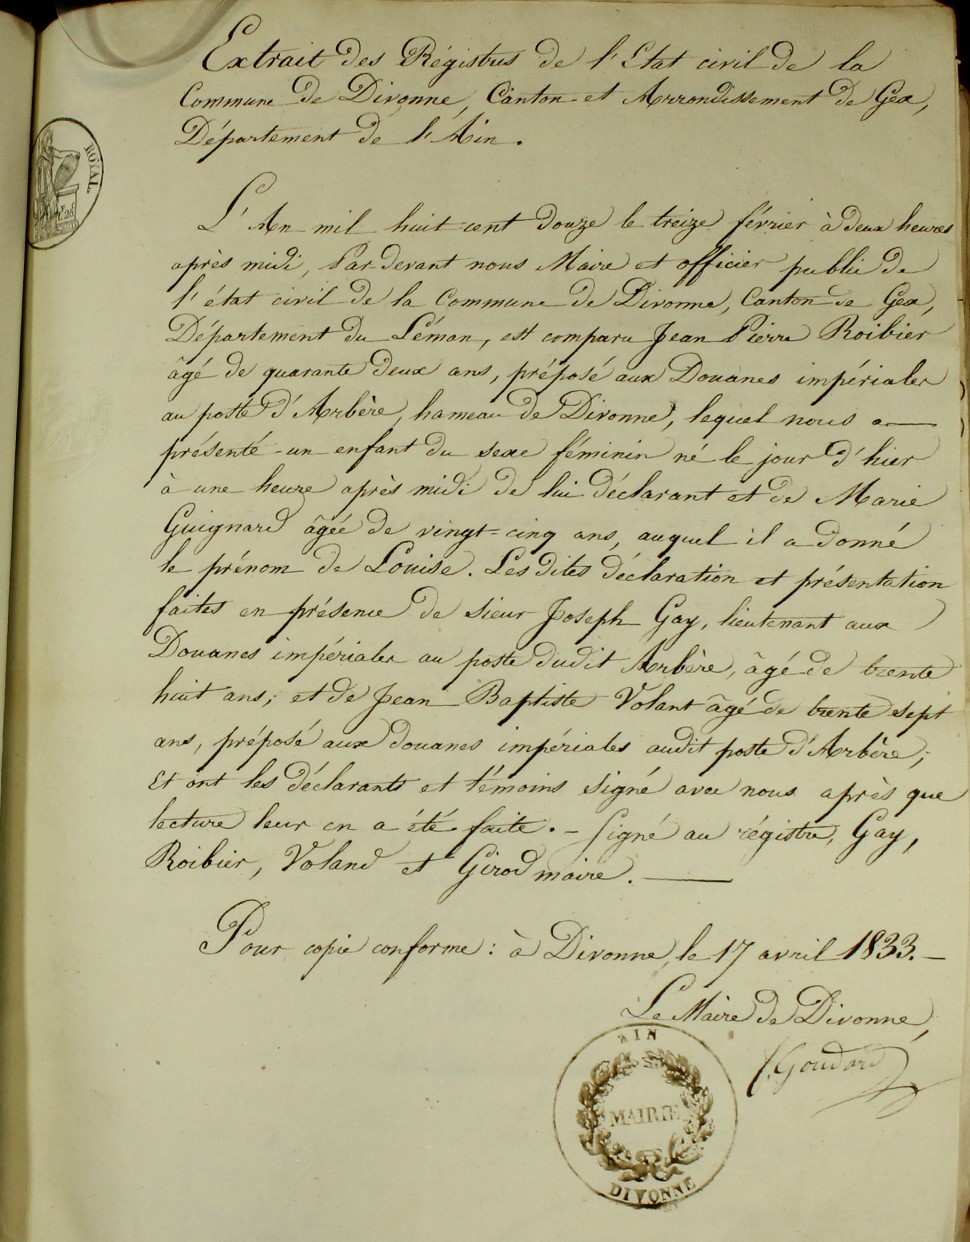 Extrait des Régistres de l'Etat civil de la
Commune de Divonne, Canton et Arrondissement de Gex,
Département de l'Ain.
ROYAL
L'An mil huit cent douze le treize février à deux heures
après midi, Par devant nous Maire et officier public de
l'état civil de la Commune de Divonne, Canton de Gex,
Département du Léman, est comparu Jean Pierre Roibier
âgé de quarante deux ans, préposé aux Douanes impériales
au poste d'Arbère, hameau de Divonne, lequel nous a
présenté un enfant du sexe féminin né le jour d'hier
à une heure après midi de lui déclarant et de Marie
Guignard âgée de vingt-cinq ans, auquel il a donné
le prénom de Louise. Les dites déclaration et présentation
faites en présence de sieur Joseph Gay, lieutenant aux
Douanes impériales au poste dudit Arbère, âgé de trente
huit ans; et de Jean Baptiste Volant âgé de trente sept
ans, préposé aux douanes impériales audit poste d'Arbère;
Et ont les déclarants et témoins signé avec nous après que
lecture leur en a été faite. - Signé au régistre, Gay,
Roibier, Voland et Girod maire.
Pour copie conforme: à Divonne, le 17 avril 1833.
Le Maire de Divonne,
Goudard
AIN
MAIRIE
DIVONNE